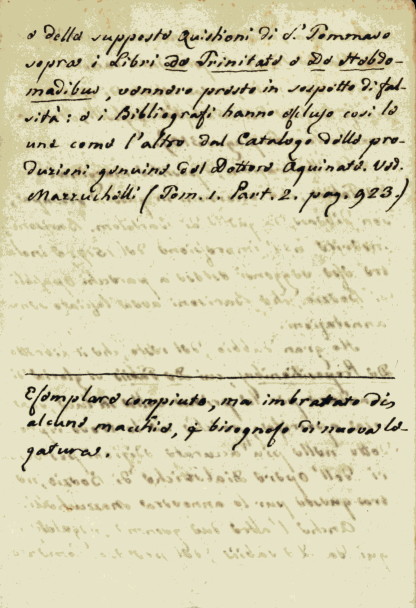 e delle supposte Quistioni di S. Tommaso
sopra i Libri De Trinitate e De Hebdo-
madibus, vennero presto in sospetto di fal-
sità: e i Bibliografi hanno escluso così le
une come l'altre dal Catalogo delle pro-
duzioni genuine del Dottore Aquinate. Ved.
Mazzuchelli (Tom. 1. Part. 2. pag. 923.)
Esemplare compiuto, ma imbrattato di
alcune macchie, e bisognoso di nuova le-
gatura.